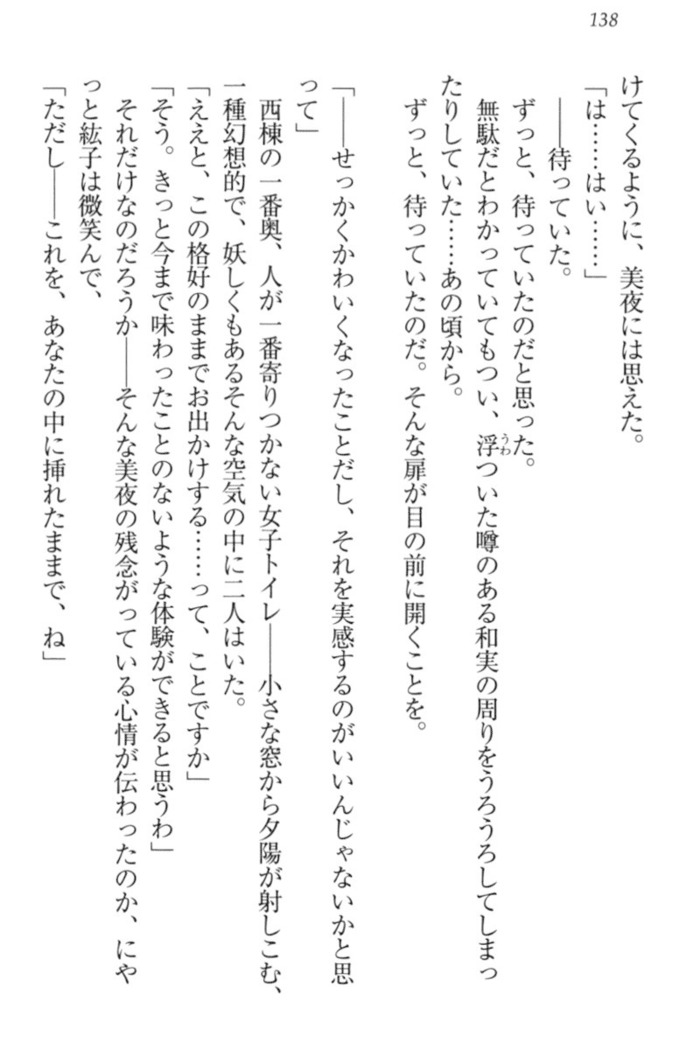 138
けてくるように、美夜には思えた。
「は……はい……」
――待っていた。
ずっと、待っていたのだと思った。
無駄だとわかっていてもつい、浮ついた噂のある和実の周りをうろうろしてしまっ
たりしていた……あの頃から。
ずっと、待っていたのだ。そんな扉が目の前に開くことを。
「――せっかくかわいくなったことだし、それを実感するのがいいんじゃないかと思
って」
西棟の一番奥、人が一番寄りつかない女子トイレ――小さな窓から夕陽が射しこむ、
一種幻想的で、妖しくもあるそんな空気の中に二人はいた。
「ええと、この格好のままでお出かけする……って、ことですか」
「そう。きっと今まで味わったことのないような体験ができると思うわ」
それだけなのだろうか――そんな美夜の残念がっている心情が伝わったのか、にや
っと紘子は微笑んで、
「ただし――これを、あなたの中に挿れたままで、ね」